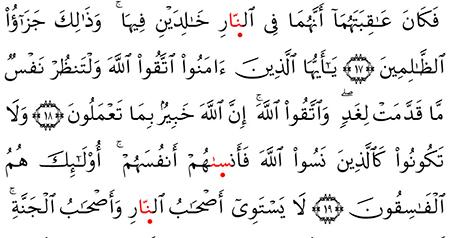 فَكَانَ عَٰقِبَتَهُمَآ أَنَّهُمَا فِى ٱلنَّارِ خَٰلِدَيْنِ فِيهَا ۚ وَذَٰلِكَ جَزَٰٓؤُا۟
ٱلظَّٰلِمِينَ ١٧ يَٰٓأَيُّهَا ٱلَّذِينَ ءَامَنُوا۟ ٱتَّقُوا۟ ٱللَّهَ وَلْتَنظُرْ نَفْسٌ
مَّا قَدَّمَتْ لِغَدٍ ۖ وَٱتَّقُوا۟ ٱللَّهَ ۚ إِنَّ ٱللَّهَ خَبِيرٌۢ بِمَا تَعْمَلُونَ ١٨ وَلَا
تَكُونُوا۟ كَٱلَّذِينَ نَسُوا۟ ٱللَّهَ فَأَنسَىٰهُمْ أَنفُسَهُمْ ۚ أُو۟لَٰٓئِكَ هُمُ
ٱلْفَٰسِقُونَ ١٩ لَا يَسْتَوِىٓ أَصْحَٰبُ ٱلنَّارِ وَأَصْحَٰبُ ٱلْجَنَّةِ ۚ